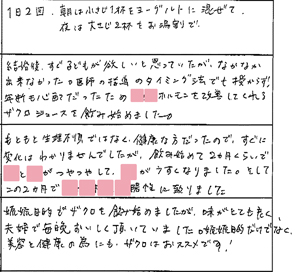 1日2回、朝は小さじ1杯をヨーグルトに混ぜて、
夜は大さじ2杯をお湯割で。
結婚後、すぐ子どもが欲しいと思っていたが、なかなか
出来なかった。医師の指導のタイミング法でも授からず!
年齢も心配だったため ホルモンを改善してくれる
ザクロジュースを飲み始めました。
もともと生理不順ではなく、健康な方だったので、すぐに
変化はわかりませんでしたが、飲用始めて2カ月くらいで
と がつやつやして、 がうすくなりました。そして
この2カ月で 陽性に至りました
妊娠目的でザクロを飲み始めましたが、味がとても良く、
夫婦で毎晩おいしく頂いていました。妊娠目的だけでなく、
美容と健康の為にも、ザクロはおススメです!